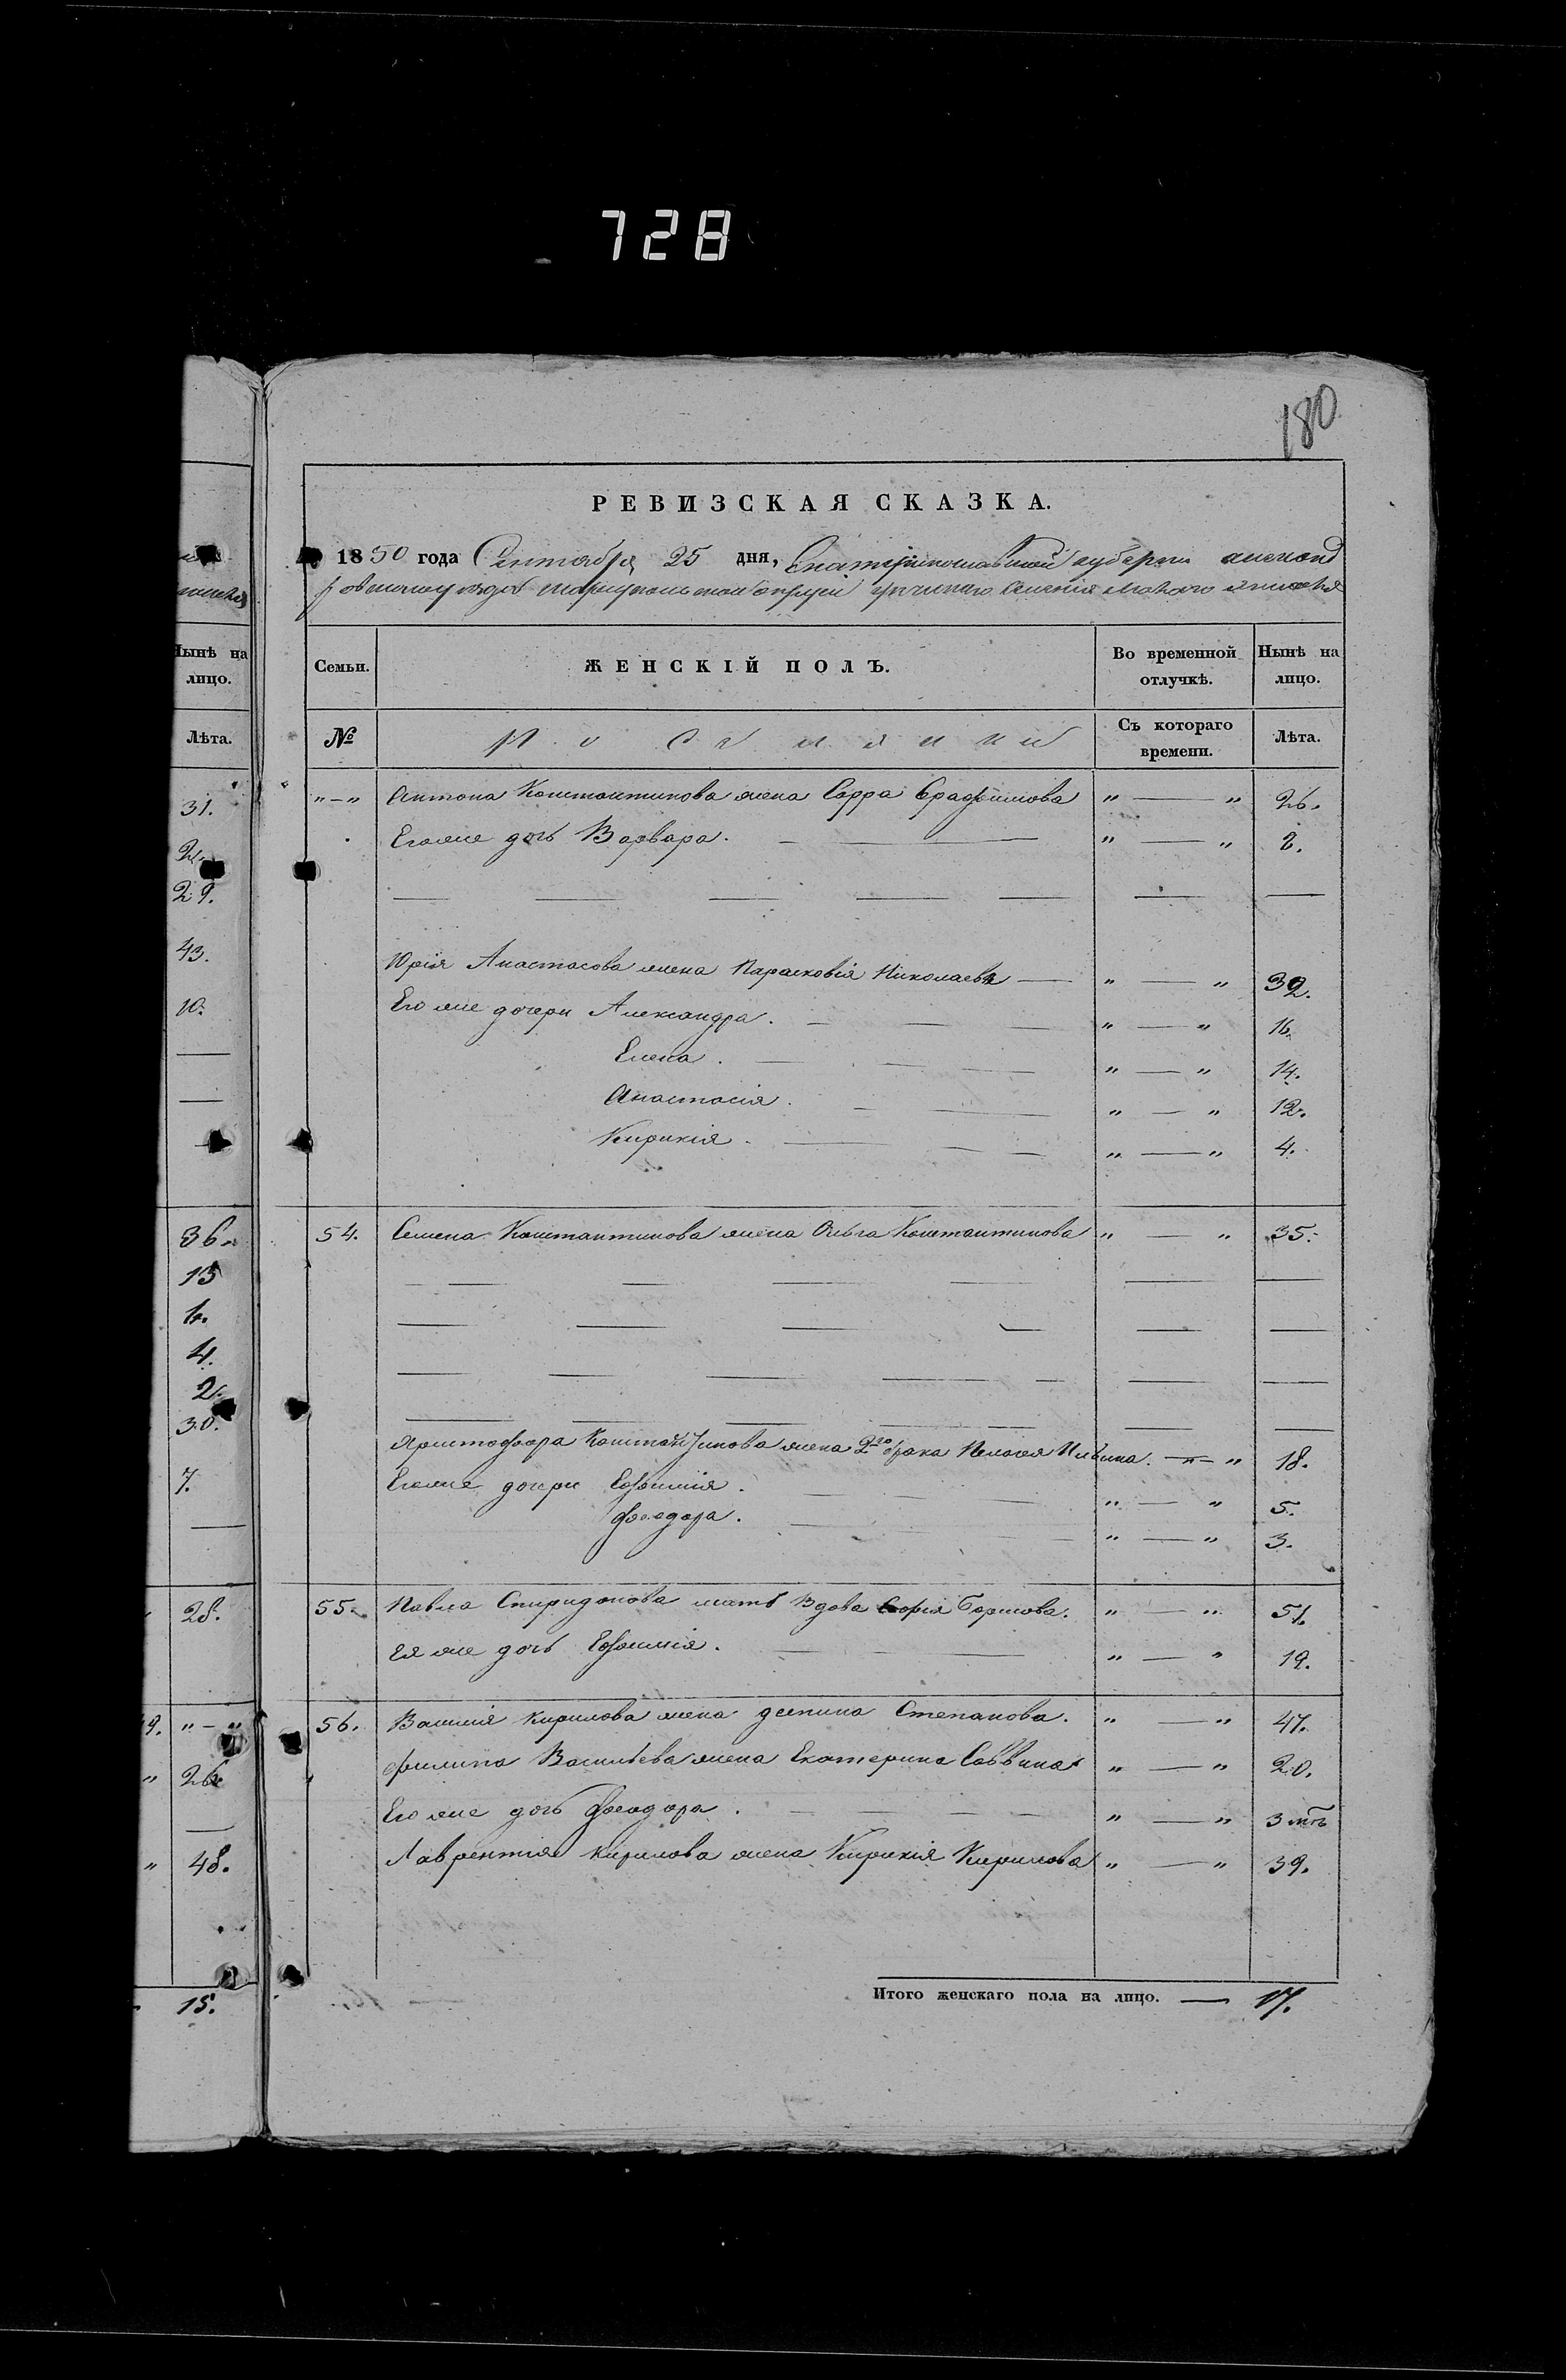 728
180
РЕВИЗСКАЯ СКАЗКА.
1850 года Сентября 25 дня, Екатеринославской губернии Александ
ровскаго уезда Мариупольскаго округа греческаго селения Малаго Янисоля
Нынѣ на лицо.
Лѣта.
31.
2.
29.
43.
10.
36.
13
4.
2.
30.
7.
28.
9. " — "
" 26
" 48.
15.
Семьи. ЖЕНСКІЙ ПОЛЪ. Во временной отлучкѣ. Нынѣ на лицо.
№ Поселянки Съ котораго времени. Лѣта.
" — " Антона Константинова жена Сарра Серафимова " — " 26.
Егоже дочь Варвара. " — " 2.
Юрія Анастасова жена Парасковія Николаева " — " 32.
Его же дочери Александра. " — " 16.
Елена. " — " 14.
Анастасія. " — " 12.
Кирикія. " — " 4.
54. Семена Константинова жена Ольга Константинова " — " 35.
Христофора Константинова жена 2го брака Пелагея Ильина. — " — " 18.
Егоже дочери Евфимія. " — " 5.
Феодора. " — " 3.
55. Павла Спиридонова мать вдова Софія Борисова. " — " 51.
Ея же дочь Евфимія. " — " 19.
56. Василія Кирилова жена Деспина Степанова. " — " 47.
Филипа Васильева жена Екатерина Саввина " — " 20.
Его же дочь Феодора. " — " 3 мѣ
Лаврентія Кирилова жена Кирикія Кирилова " — " 39.
Итого женскаго пола на лицо. — 17.